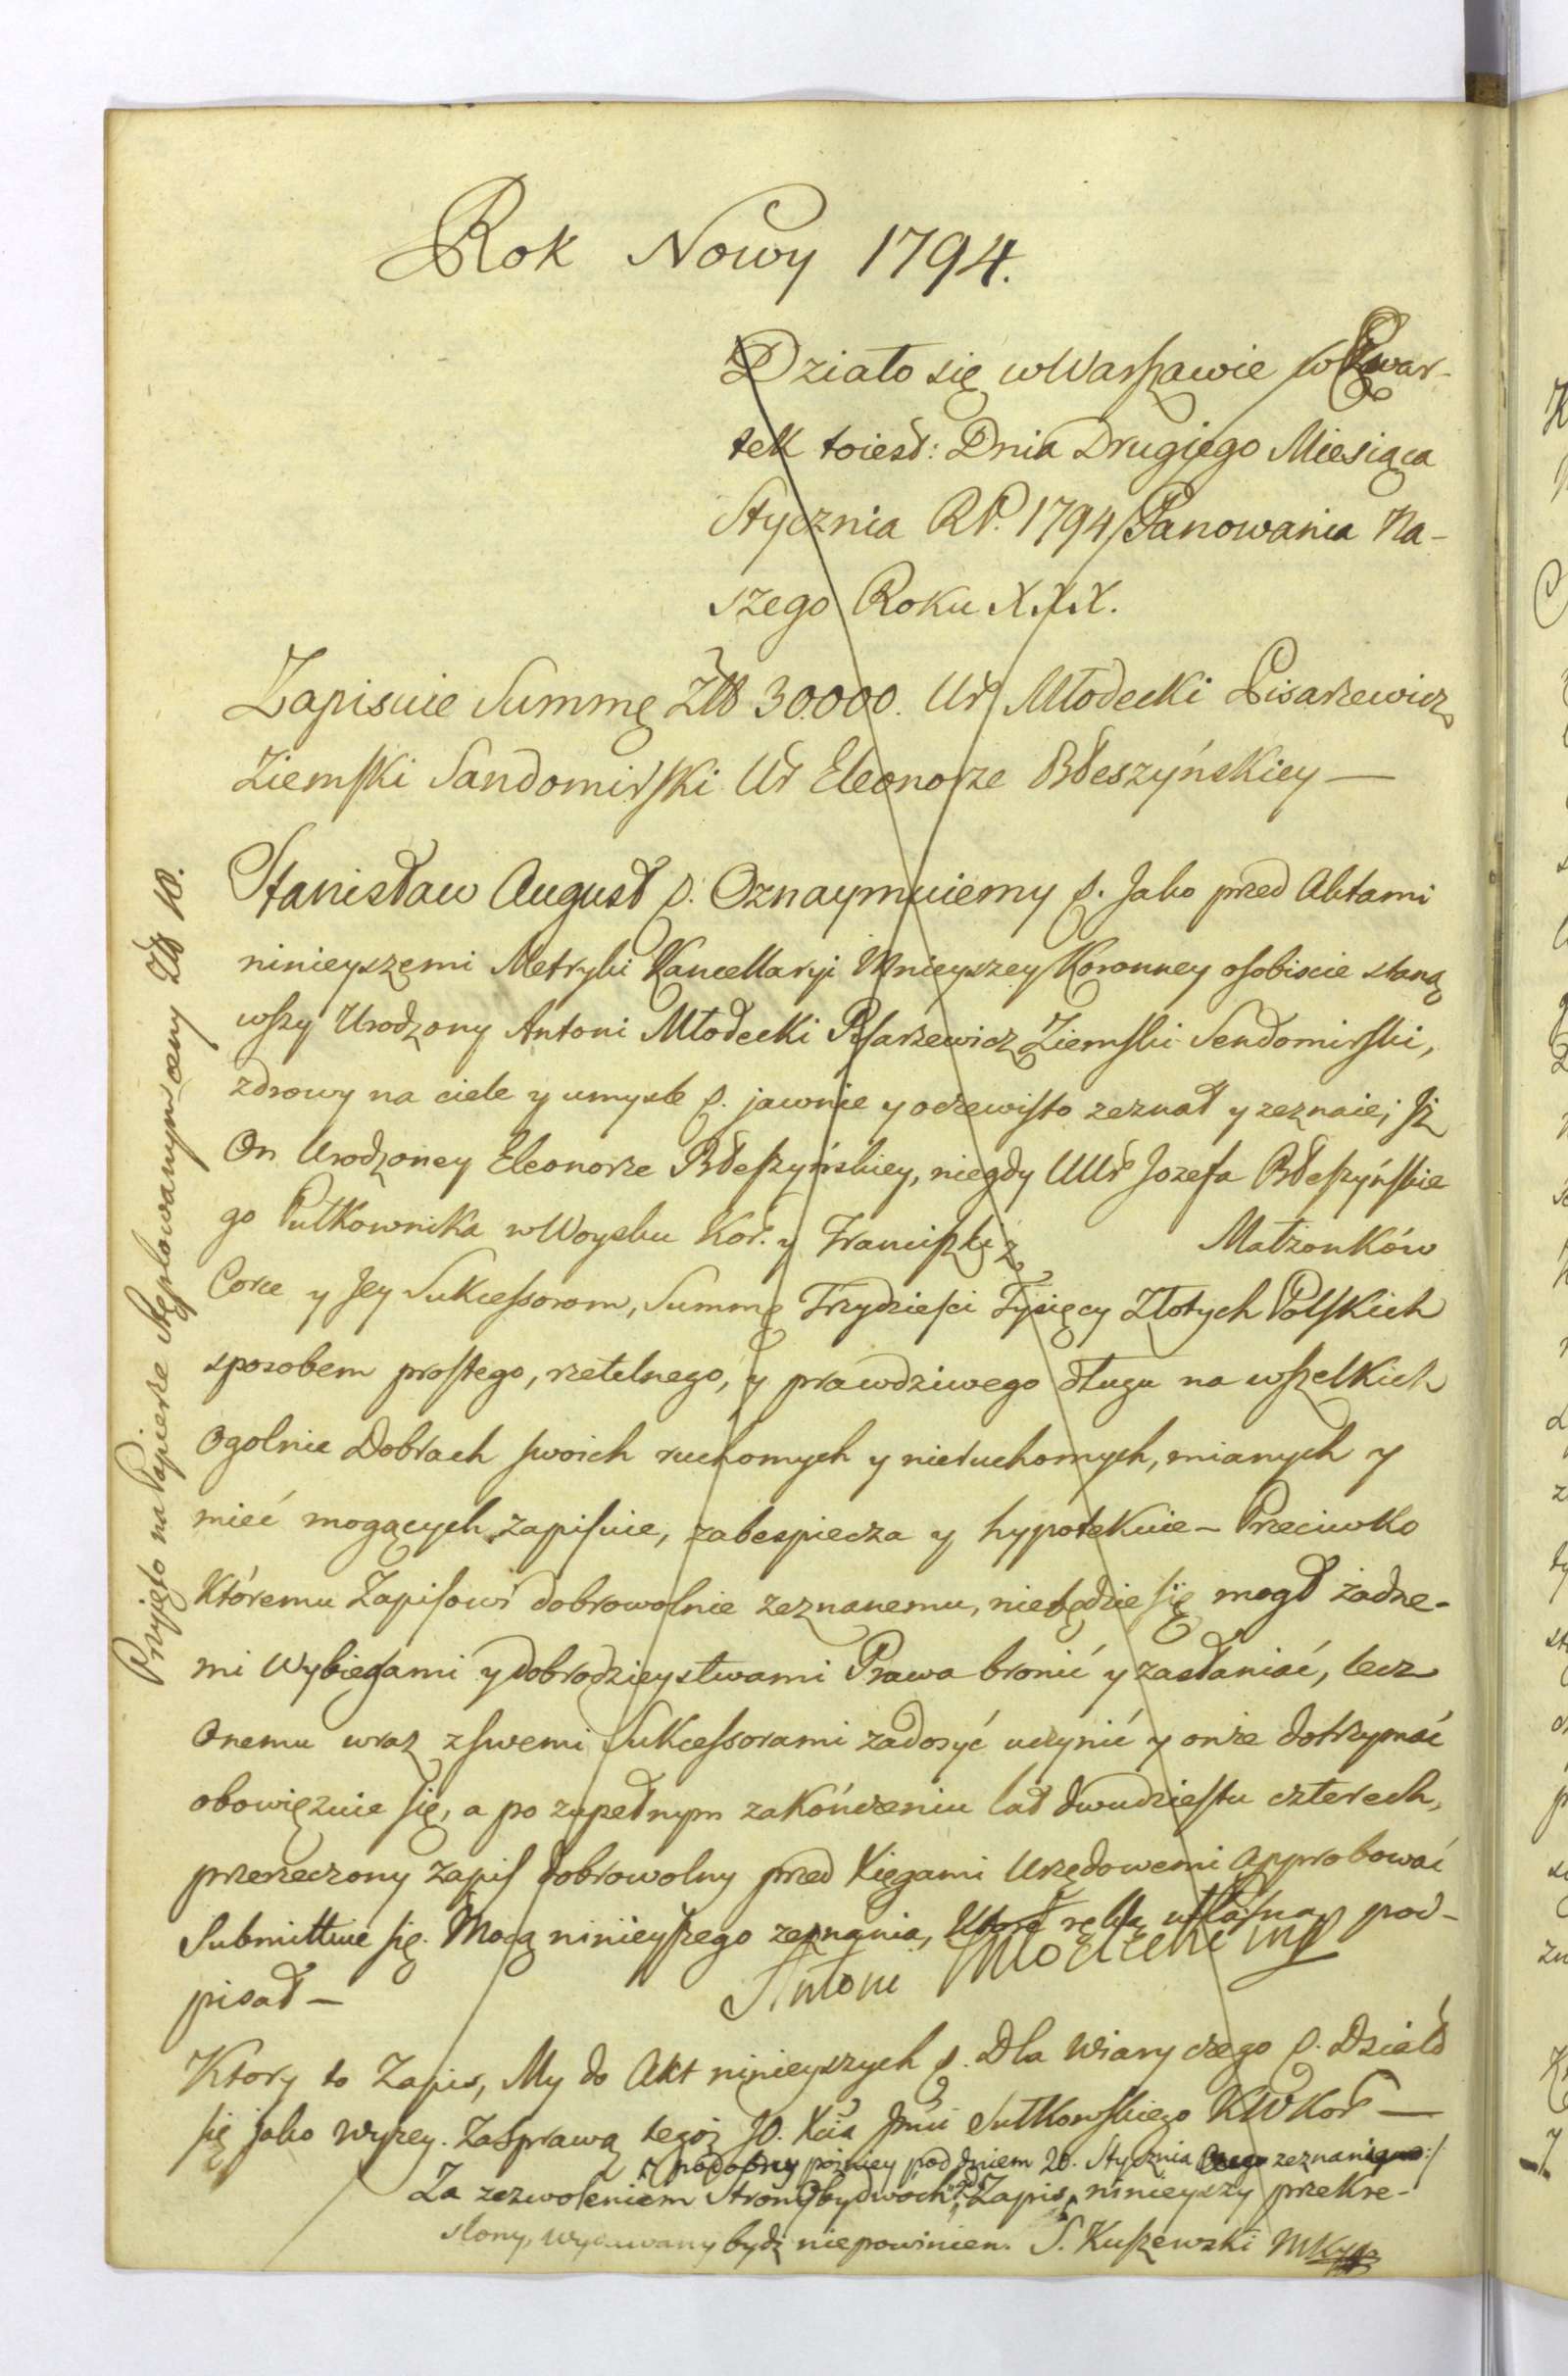 Rok Nowy 1794.
Działo się w Warszawie w Czwar-
tek toiest: Dnia Drugiego Miesiąca
Stycznia RP. 1794 Panowania Na-
szego Roku XXX.
Zapisuie Summę Złł 30.000. Ur Młodecki Pisarzewicz
Ziemski Sandomirski Ur Eleonorze Błeszyńskiey —
Stanisław August p. Oznaymuiemy p. Jako przed Aktami
ninieyszemi Metryki Kancellaryi Mnieyszey Koronney osobiscie staną
wszy Urodzony Antoni Młodecki Pisarzewicz Ziemski Sendomirski,
zdrowy na ciele y umysle p. jawnie y oczewisto zeznał y zeznaie; Iż
On Urodzoney Eleonorze Błeszyńskiey, niegdy UUr Jozefa Błeszyńskie
go Pułkownika w Woysku Kor. y Franciszki z Małżonków
Corce y Jey Sukcessorom, Summę Trzydziesci Tysięcy Złotych Polskich
sposobem prostego, rzetelnego, y prawdziwego długu na wszelkich
Ogolnie Dobrach swoich ruchomych y nieruchomych, mianych y
mieć mogących zapisuie, zabespiecza y hypotekuie – Przeciwko
Któremu Zapisowi dobrowolnie zeznanemu, niebędzie się mogł żadne-
mi Wybiegami y dobrodzieystwami Prawa bronić y zasłaniać, lecz
Onemu wraz z swemi Sukcessorami zadosyć uczynić y onże dotrzymać
obowięzuie się, a po zupełnym zakończeniu lat dwudziestu czterech,
przerzeczony Zapis dobrowolny przed Xięgami Urzędowemi approbować
Submittuie się. Mocą ninieyszego zeznania, ręką własną pod-
pisał – Antoni Młodecki mp
Ktory to Zapis, My do Akt ninieyszych p. Dla Wiary czego p. Działo
się jako wyzey. Za Sprawą tegoż JO. Xcia Jmci Sułkowskiego KWKor —
podobny pozniey pod dniem 20. Stycznia zeznanie
Za zezwoleniem Stron Obydwoch, Zapis ninieyszy przekre-
slony, wydawany bydź niepowinien. S. Kuszewski MK
Przyięto na Papierze Stęplowanym ceny Złł 10.